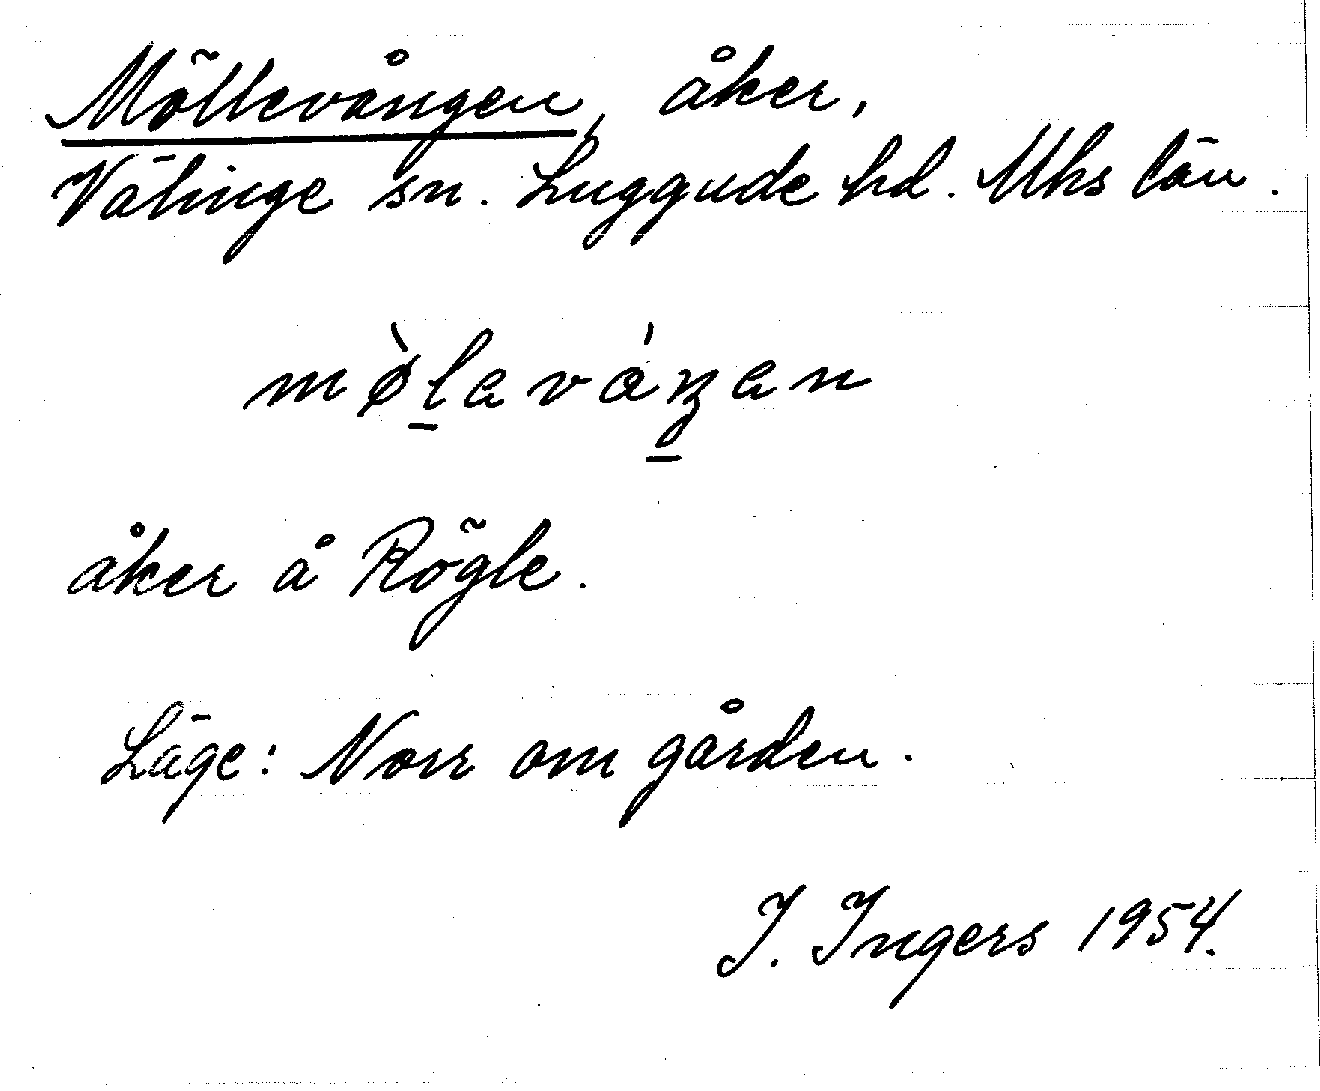 Möllevången, åker,
Välinge sn. Luggude hd. Mhs län.
mø̀l̠avá̊ŋ̠an
åker å Rögle.
Läge: Norr om gården.
I. Ingers 1954.